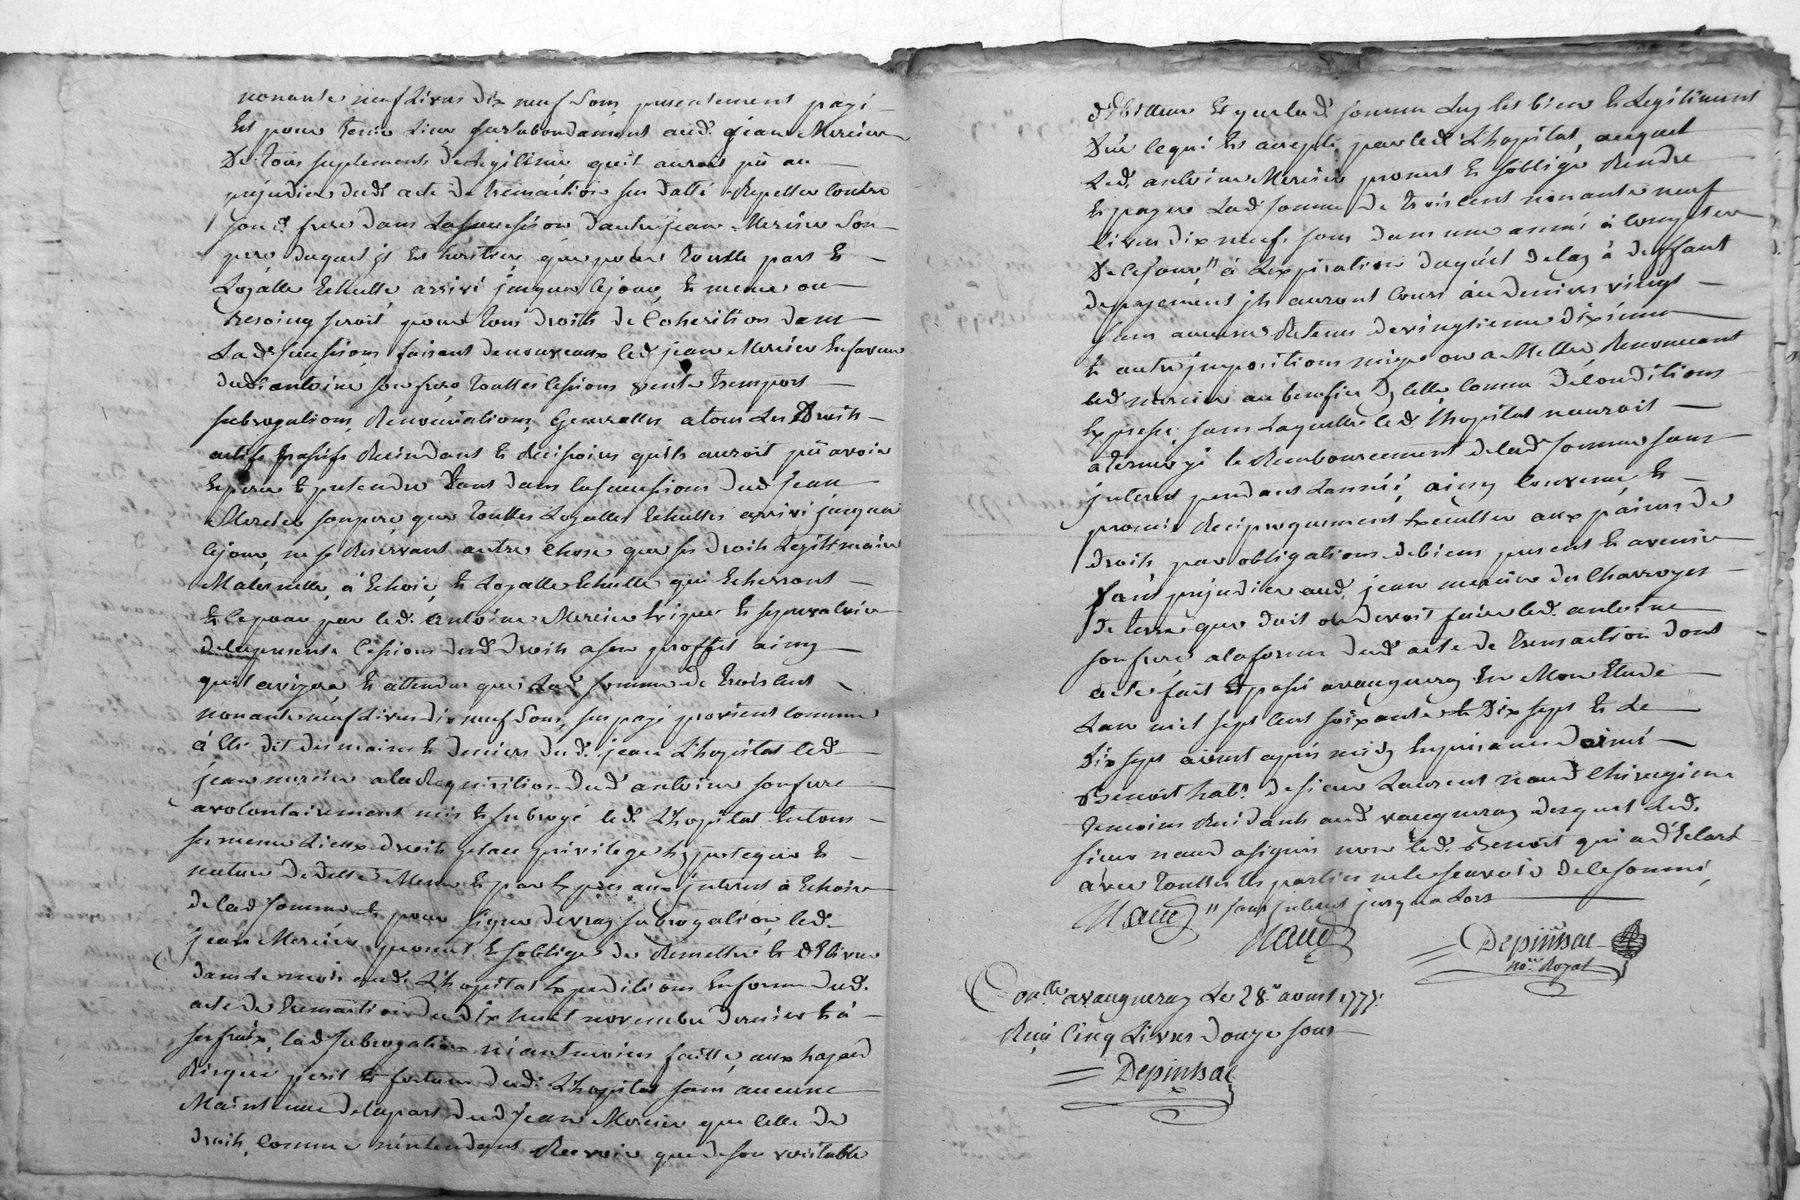 nonante neuf Livres dix neuf Sous presentement payé
Et pour tenir Lieu surabondament aud. jean Mercier
De tous suplement De Legitime quil auroit pû au
prejudice dud. acte De transaction sus datté Repetter contre
son d. frere dans La succession d'autre jean Mercier Son
pere duquel il est heritier que pour toutte part Et
Legalle Echutte arrivé jusqua ce jour, Et meme ou
besoing seroit pour tous droits de Coheritier dans
La d. succession faisant de nouveaux led. jean Mercier En faveur
dud. antoine son frere, touttes cessions vente transport
subrogations, Renonciations, Generalles a tous Les Droits
actifs passifs Rescindant Et Rescisoires quils auroit pû avoir
Esperer Et pretendre dans la succession dud. jean
Mercier son pere que touttes Legalles Echuttes arrivé jusqua
ce jour, ne se Reservant autre chose que ses droits Legitimaire
Maternelle, à Echoir, Et Legalle Echutte, qui Echerront
Et ce pour par led. antoine Mercier Et se prevaloir
de la presente Cession dud. droits a son proffit ainsy
quil avizera Et attendu que La d. somme de trois cent
nonante neuf Livres dix neuf Sous, sus payé provient comme
à Eté dit des mains Et deniers dud. jean L'hopital led.
jean mercier a la Requisition dud. antoine son frere
a volontairement mis Et subrogé led. L'hopital En tous
ses meme Lieux droits place privilege hypoteque Et
nature de dette Meme Et par Exprés aux interest à Echoir
de lad. somme Et pour signe de vray subrogation, led.
jean Mercier promet Et soblige de Remettre Et d'Elivrer
dans Le mois aud. L'hopital Expeditions En forme dud.
acte de transaction du dix huit novembre dernier Et à
ses fraix, lad. subrogation n'eantmoins faitte, aux hazard
Risque peril Et fortune dud. L'hopital sans aucune
Maintenue de la part dud. jean Mercier que celle de
droits, comme n'entendant Recevoir que de son veritable
d'Ebitteur Et que lad. somme Luy Est bien Et Legitiment
Düe ce qui Est accepté par led. L'hopital, auquel
Led. antoine Mercier promet Et soblige Rendre
Et payer Lad. somme De trois cent nonante neuf
livres dix neufs sous dans une anné à compter
De ce jour " à L'expiration duquel delay à deffaut
de payement ils auront cours au denier vingt
sans aucune Retenue de vingtieme dixieme
Et autre impositions mise ou a Mettre, Renonceant
led. mercier au benefice Dicelle, comme De conditions
Expresse sans Laquelle led. L'hopital nauroit
atermoyé le Remboursement de lad. somme sans
interest pendant L'anneé, ainsy Convenu Et
promis Reciproquement Executter aux paines de
droits, par obligations de biens present Et avenir
sans prejudice aud. jean mercier des charroyes
de terre que doit ou devoit faire led. antoine
son frere, a la forme dud. acte de transaction dont
acte fait Et passé a vaugneray En Mon Etude
L'an mil sept cent soixante Et Dix sept Et Le
Dix sept aoust apres midy En presence d'aimé
Benoit hab.t De sieur Laurent naud Chirurgien
temoins Residants aud. vaugneray desquel Led.
sieur naud a signé non led. Benoit qui a d'Eclaré
avec touttes les parties ne le scavoir de ce sommé,
Naud " sans interest jusqu a Lors
Naud
Depinhac
No.re Royal
Con.llé a vaugneray Le 28.e aoust 1777.
Reçu Cinq Livres douze sous
Depinhac